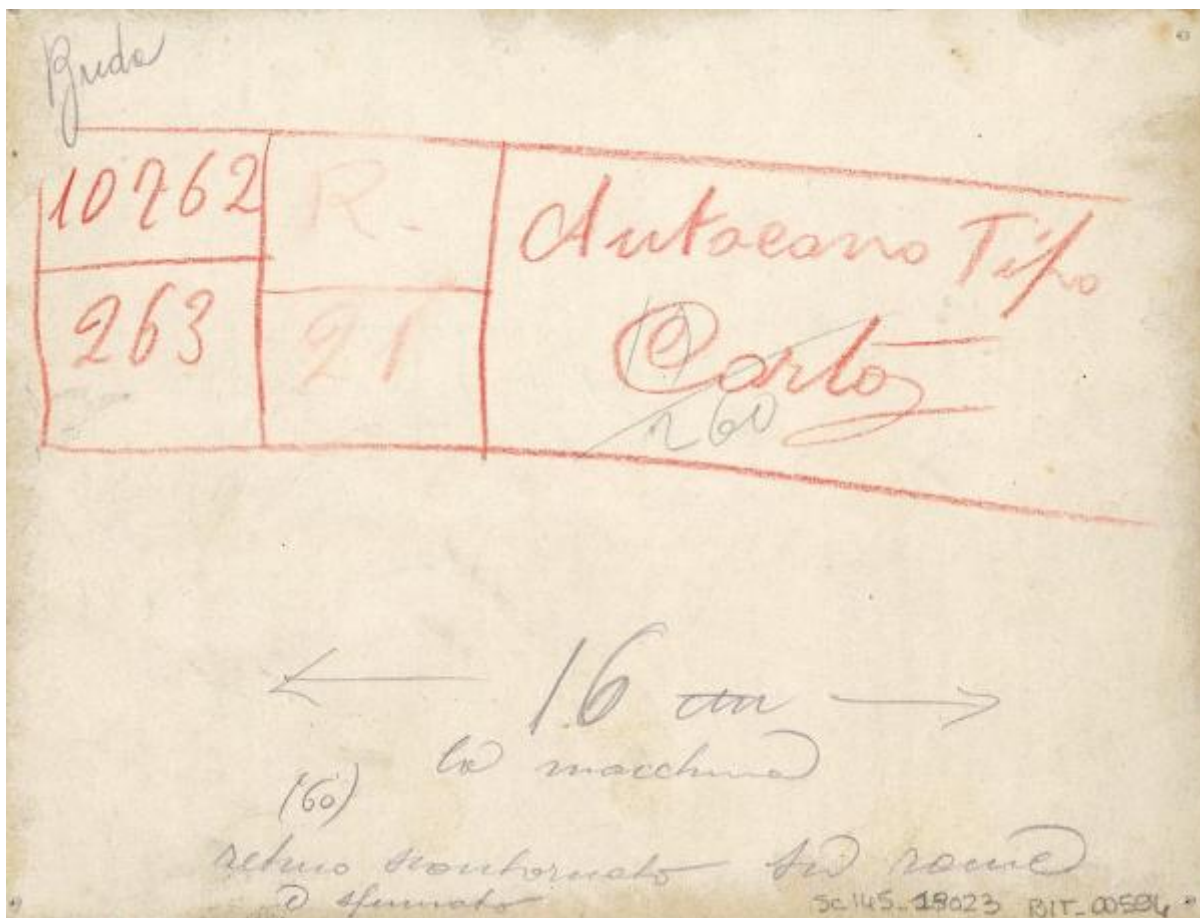 Breda
10762
R.
Autocarro Tipo
263
21
Corto
260
16 cm
la macchina
(60)
retino scontornato su rame
e sfumato
Sc 145_19023 BIT_00584